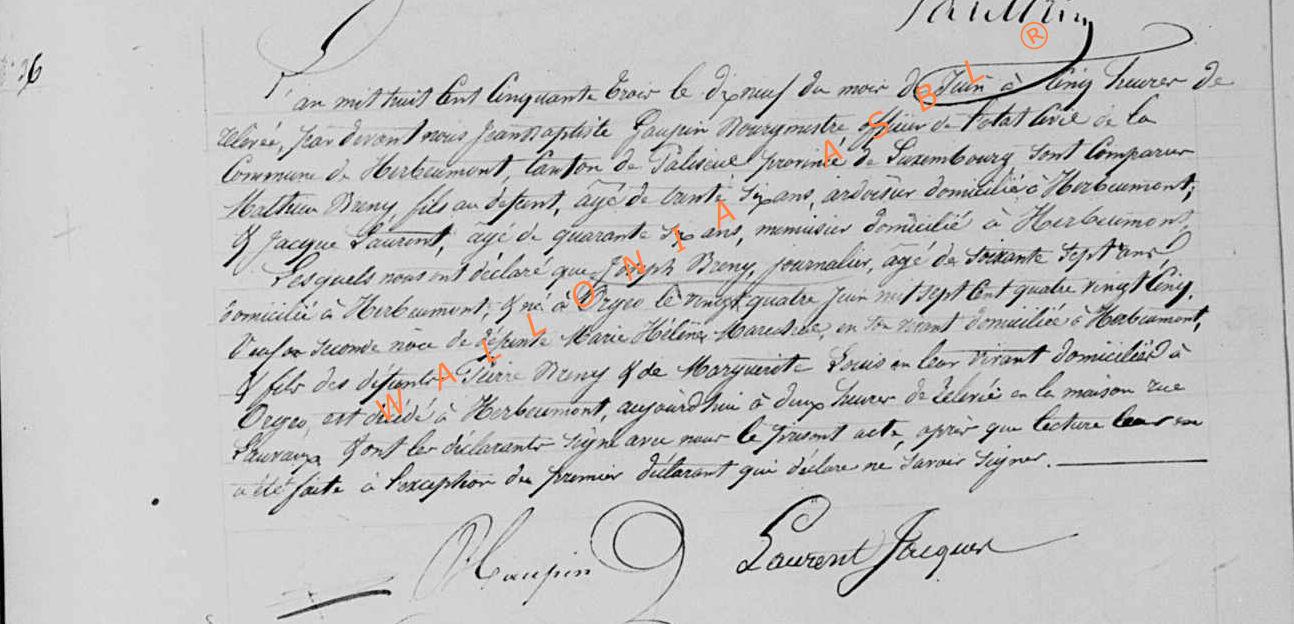 N° 26
L'an mil huit Cent Cinquante trois le dixneuf du mois de Juin à Cinq heures de
relevée, par devant nous Jean Baptiste Gaupin Bourgmestre officier de l'état Civil de la
Commune de Herbeumont, Canton de Paliseul province de Luxembourg sont Comparus
Mathieu Breny, fils au défunt, âgé de trente six ans, ardoisier domicilié à Herbeumont;
& Jacque Laurent, âgé de quarante six ans, menuisier domicilié à Herbeumont,
Lesquels nous ont déclaré que Joseph Breny, journalier, âgé de soixante sept ans,
domicilié à Herbeumont, & né à Orgeo le vingt quatre Juin mil sept Cent quatre vingt Cinq,
Veuf en seconde noce de défunte Marie Hélène Marechal, en son vivant domiciliée à Herbeumont,
& fils des défunts Pierre Breny & de Marguerite Louis en leur vivant domiciliés à
Orgeo, est décédé à Herbeumont, aujourd'hui à deux heures de relevée en la maison rue
& ont les déclarants signé avec nous le présent acte, après que lecture leur en
a été faite à l'exception du premier déclarant qui déclare ne savoir signer.
Gaupin Laurent Jacques
WALLONIA ASBL ®